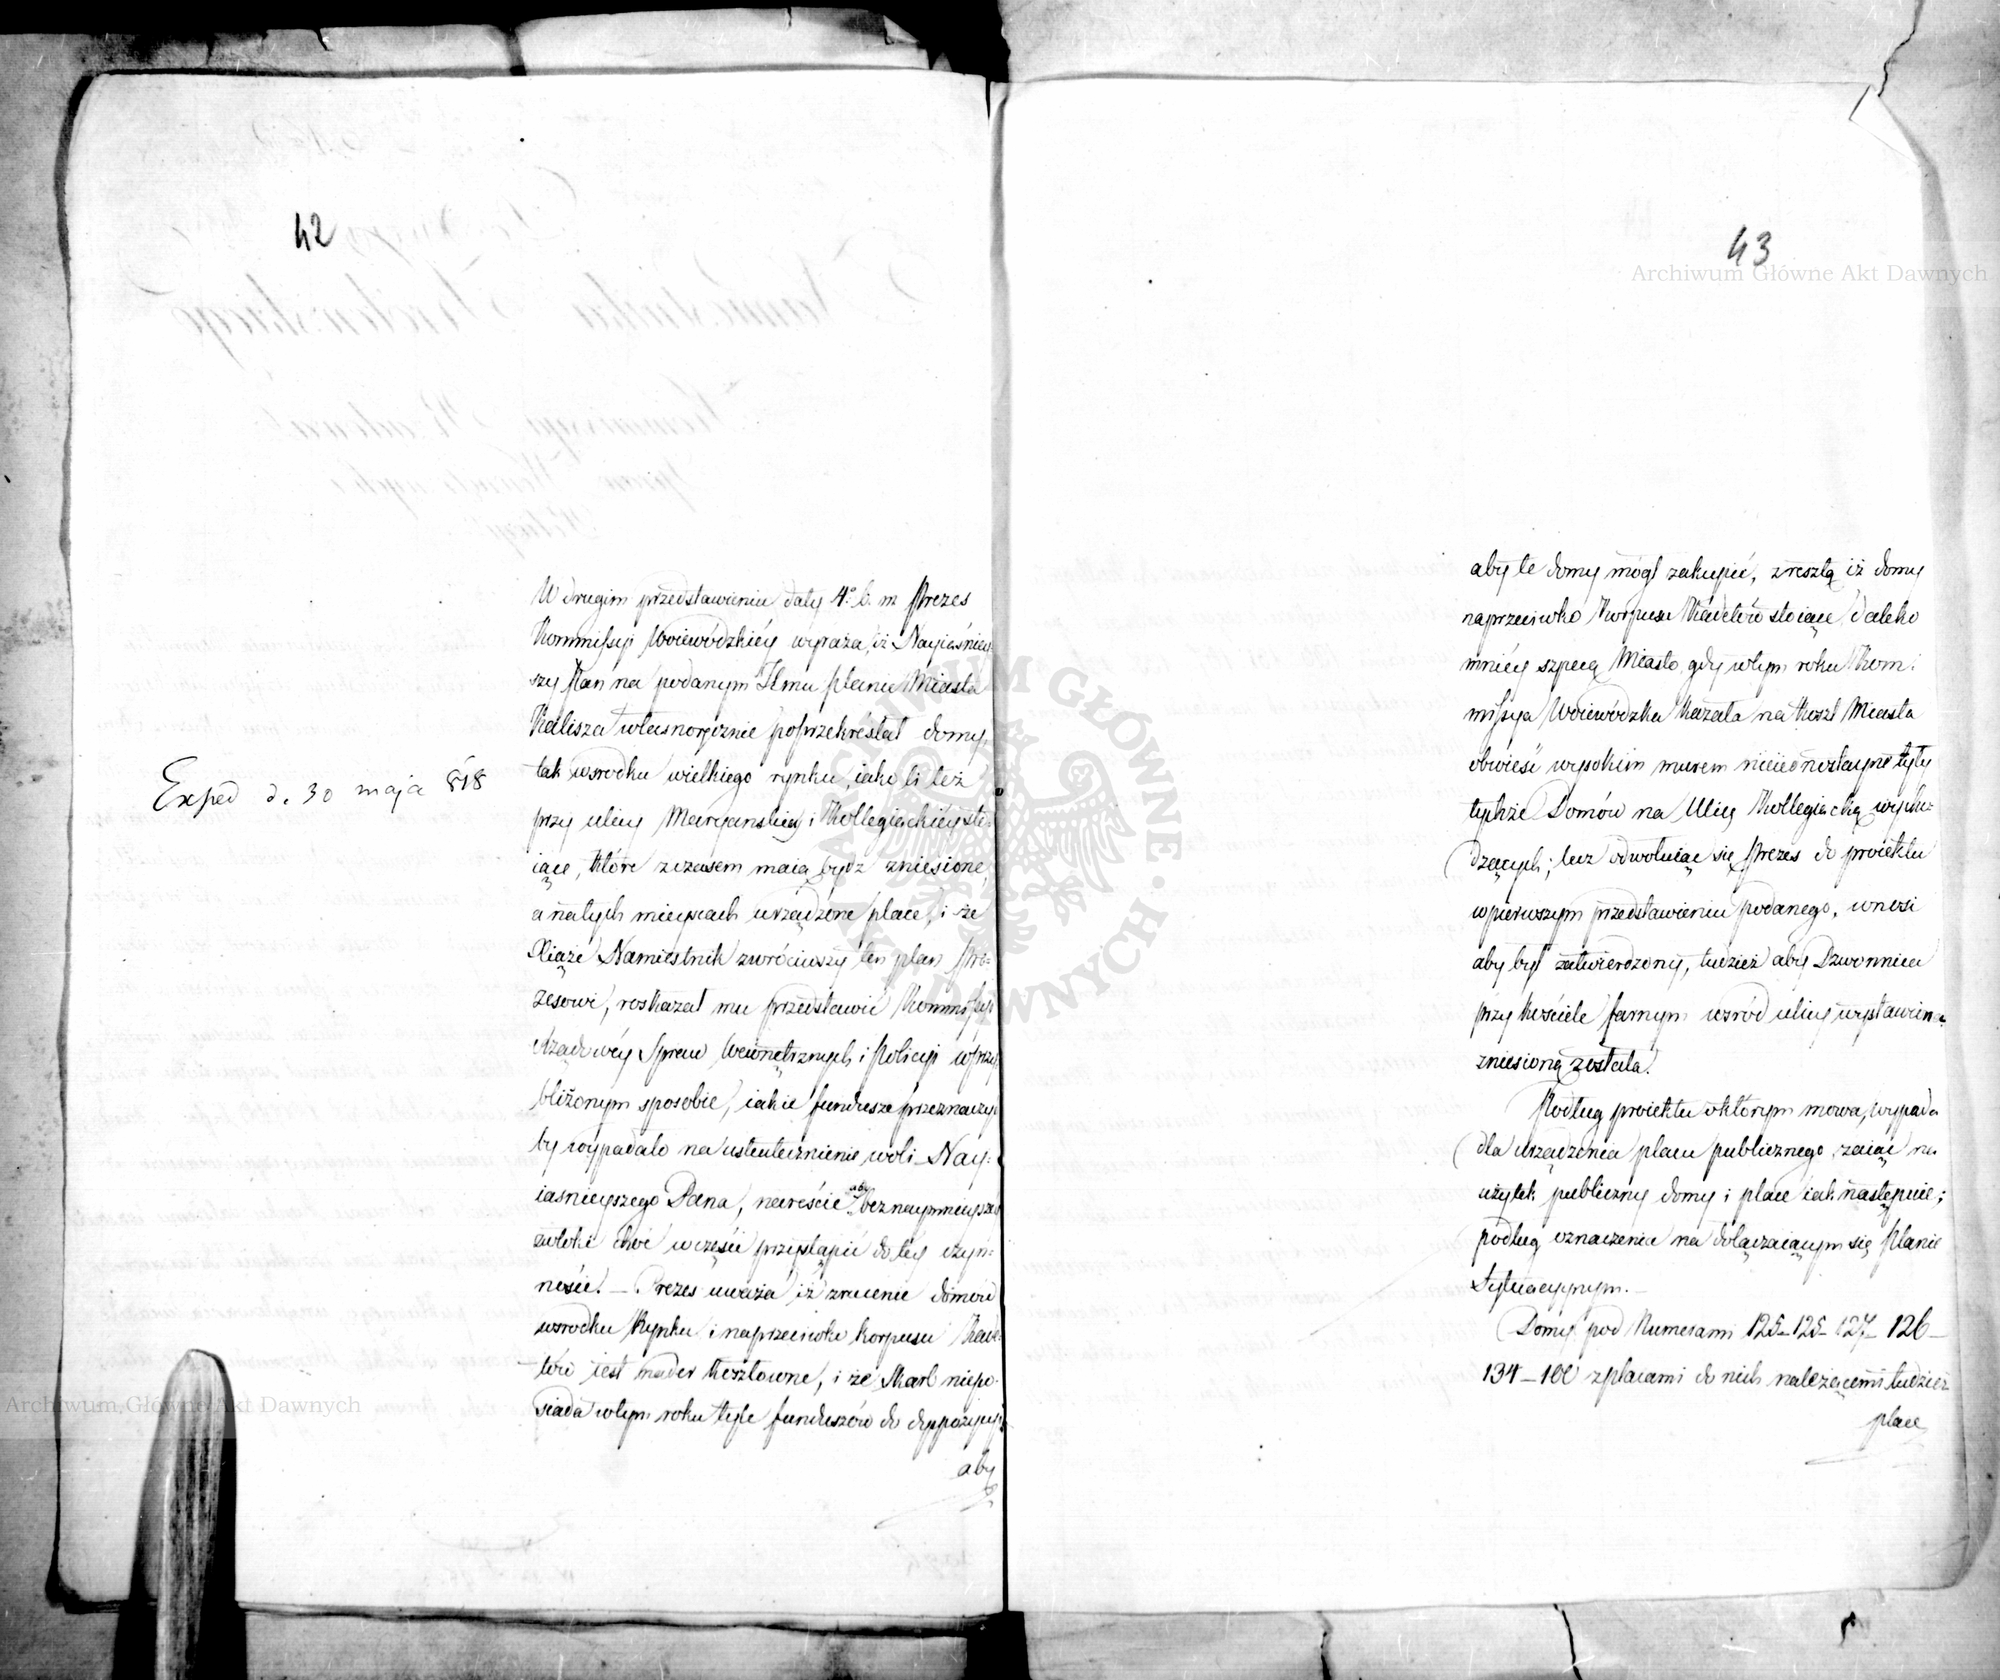 42
W drugim przedstawieniu daty 4º b. m. Prezes
Kommissyi Woiewódzkiéy wyraża, iż Nayiaśniey-
szy Pan na podanym Jemu planie Miasta
Kalisza własnoręcznie poprzekréslał domy,
tak wsrodku wielkiego rynku, iako li też
przy ulicy Maryanskiey i Kollegiackiéy sto-
iące, które zczasem maią bydź zniesione,
a natych mieyscach urządzone place, i że
Xiążę Namiestnik zwróciwszy ten plan Pre-
zesowi, roskazał mu przedstawić Kommissyi
Rządowéy Spraw Wewnętrznych i Policyi wprzy-
bliżonym sposobie, iakie fundusze przeznaczyć
by wypadało na uskutecznienie woli Nay-
iasnieyszego Pana, nareście aby bez naymnieyszéy
zwłoki choć wczęści przystąpić do téy czyn-
ności. — Prezes uważa iż zrucenie domów
wsrodku Rynku i naprzeciwko Korpusu Kade-
tów iest nader kosztowne, i że Skarb niepo-
siada wtym roku tyle funduszów do dyspozycyi,
aby
Exped d. 30 maja 818
43
aby te domy mógł zakupić, zresztą iż domy
naprzeciwko Korpusu Kadetów stoiące, daleko
mniéy szpecą Miasto, gdy wtym roku Kom-
missya Woiewódzka kazała na koszt Miasta
obwieść wysokim murem nieiednostayne tyły
tychże Domów na Ulicę Kollegiacką wycho-
dzących; lecz odwołuiąc się Prezes do proiektu
wpierwszym przedstawieniu podanego, wnosi
aby był zatwierdzony, tudzież aby Dzwonnica
przy kościele farnym wsród ulicy wystawiona
zniesioną została.
Podług proiektu októrym mowa, wypada
dla urządzenia placu publicznego, zaiąć na
użytek publiczny domy i place iak następuie;
podług oznaczenia na dołączaiącym się Planie
Sytuacyynym. —
Domy pod Numerami 125 — 125 — 127 — 126 —
134 — 100 zplacami do nich należącemi tudzież
place
Archiwum Główne Akt Dawnych
Archiwum Główne Akt Dawnych
ARCHIWUM GŁÓWNE AKT DAWNYCH